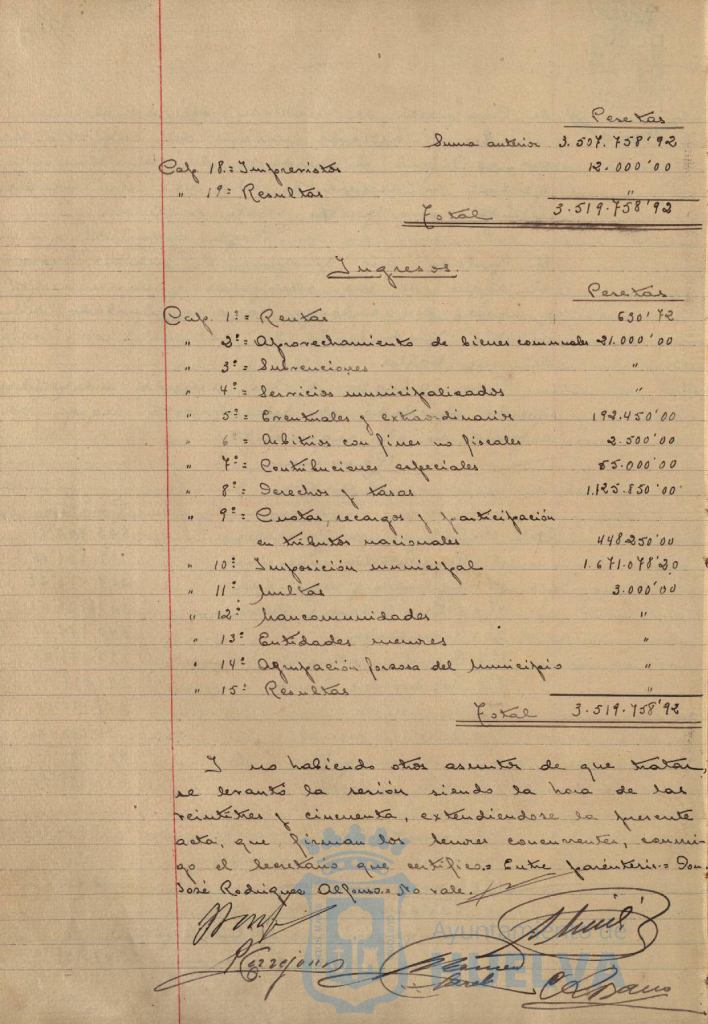 Pesetas
Suma anterior 3.507.758'92
Cap. 18.= Imprevistos 12.000'00
" 19= Resultas "
Total 3.519.758'92
Ingresos.
Pesetas
Cap. 1º= Rentas 630'72
" 2º= Aprovechamiento de bienes comunales 21.000'00
" 3º= Subvenciones "
" 4º= Servicios municipalizados "
" 5º= Eventuales y extraordinarios 192.450'00
" 6º= Arbitrios con fines no fiscales 2.500'00
" 7º= Contribuciones especiales 55.000'00
" 8º= Derechos y tasas 1.125.850'00
" 9º= Cuotas, recargos y participación
en tributos nacionales 448250'00
" 10º= Imposición municipal 1.671.078'20
" 11º Multas 3.000'00
" 12º Mancomunidades "
" 13º Entidades menores "
" 14º Agrupación forzosa del Municipio "
" 15º Resultas "
Total 3.519.758'92
Y no habiendo otros asuntos de que tratar,
se levantó la sesión siendo la hora de las
veintitres y cincuenta, extendiendose la presente
acta, que firman los Señores concurrentes, conmi-
go el Secretario que certifico.= Entre paréntesis.= Don
José Rodriguez Alfonso.= No vale.
Ayuntamiento de
HUELVA